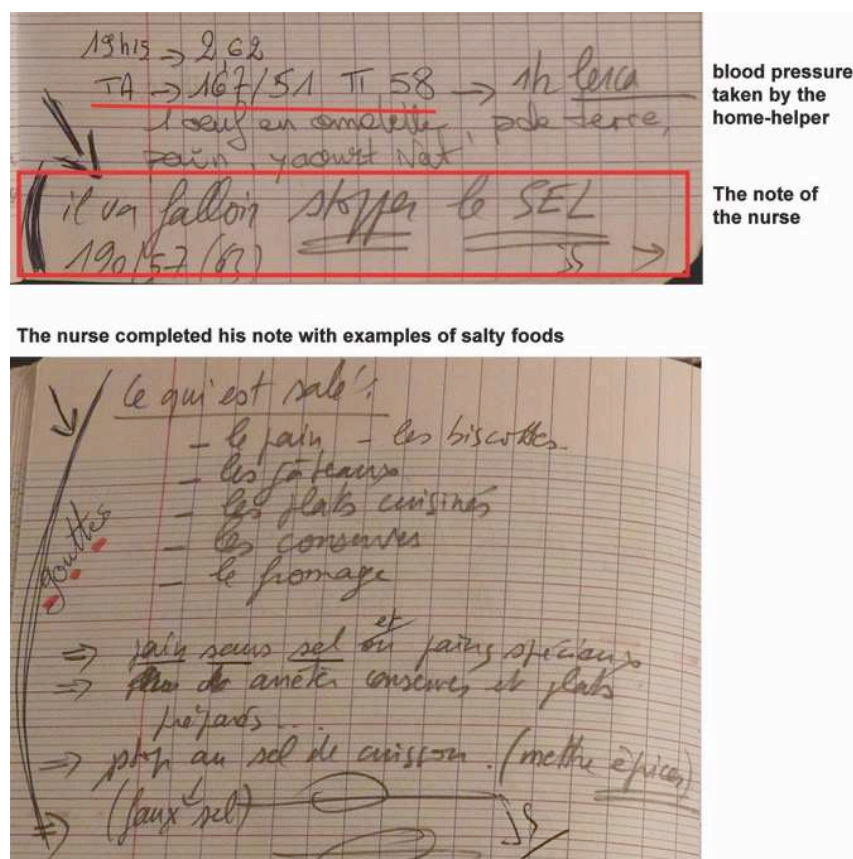 19h15 → 2,62
TA → 167/51 π 58 → 1h lerca
1 oeuf en omelette, pde terre,
pain, yaourt Nat
il va falloir stopper le SEL
190/57 (63)
blood pressure
taken by the
home-helper
The note of
the nurse
The nurse completed his note with examples of salty foods
Ce qui est salé :
- le pain - les biscottes
- les gâteaux
- les plats cuisinés
- les conserves
- le fromage
gouttes
⇒ pain sans sel et ou pains spéciaux
⇒ arrêter conserves et plats
préparés...
⇒ stop au sel de cuisson. (mettre épices)
⇒ (faux sel)